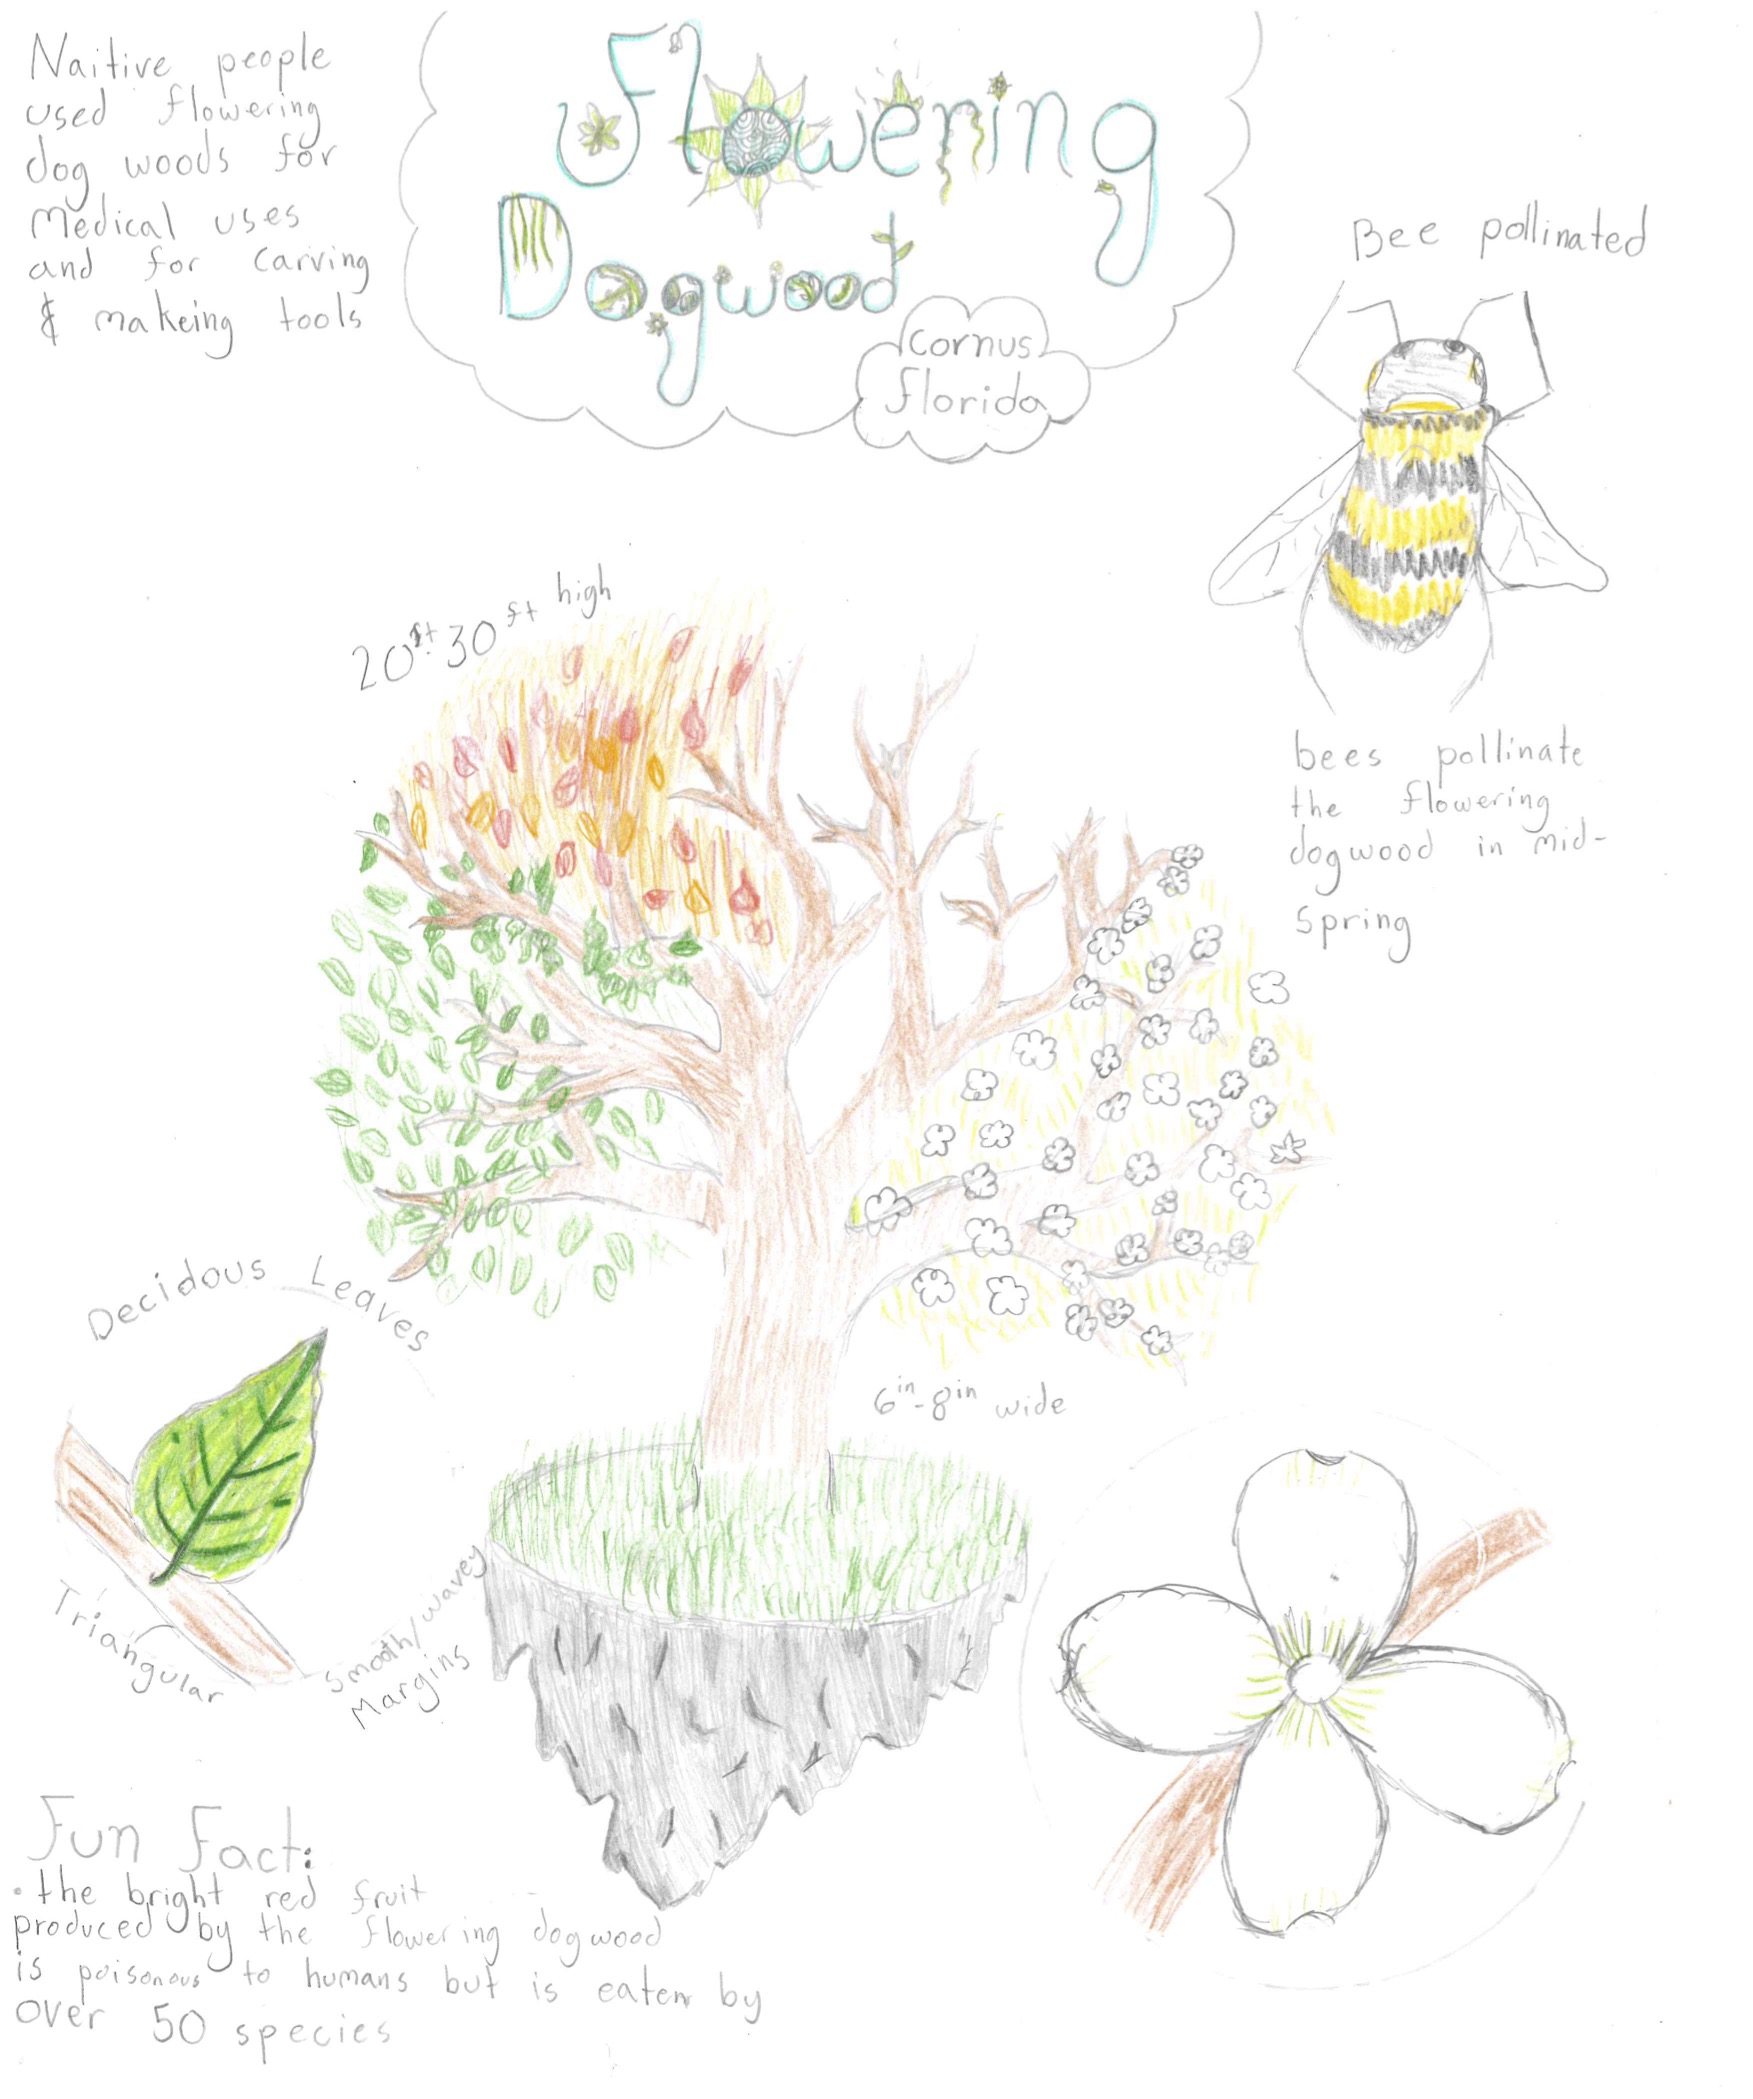 Naitive people
used flowering
dog woods for
Medical uses
and for carving
& makeing tools
Flowering
Dogwood
Cornus
florida
Bee pollinated
bees pollinate
the flowering
dogwood in mid-
spring
20ft-30ft high
Decidous Leaves
Triangular
Smooth/wavey
Margins
6in-8in wide
Fun Fact:
• the bright red fruit
produced by the flowering dogwood
is poisonous to humans but is eaten by
over 50 species